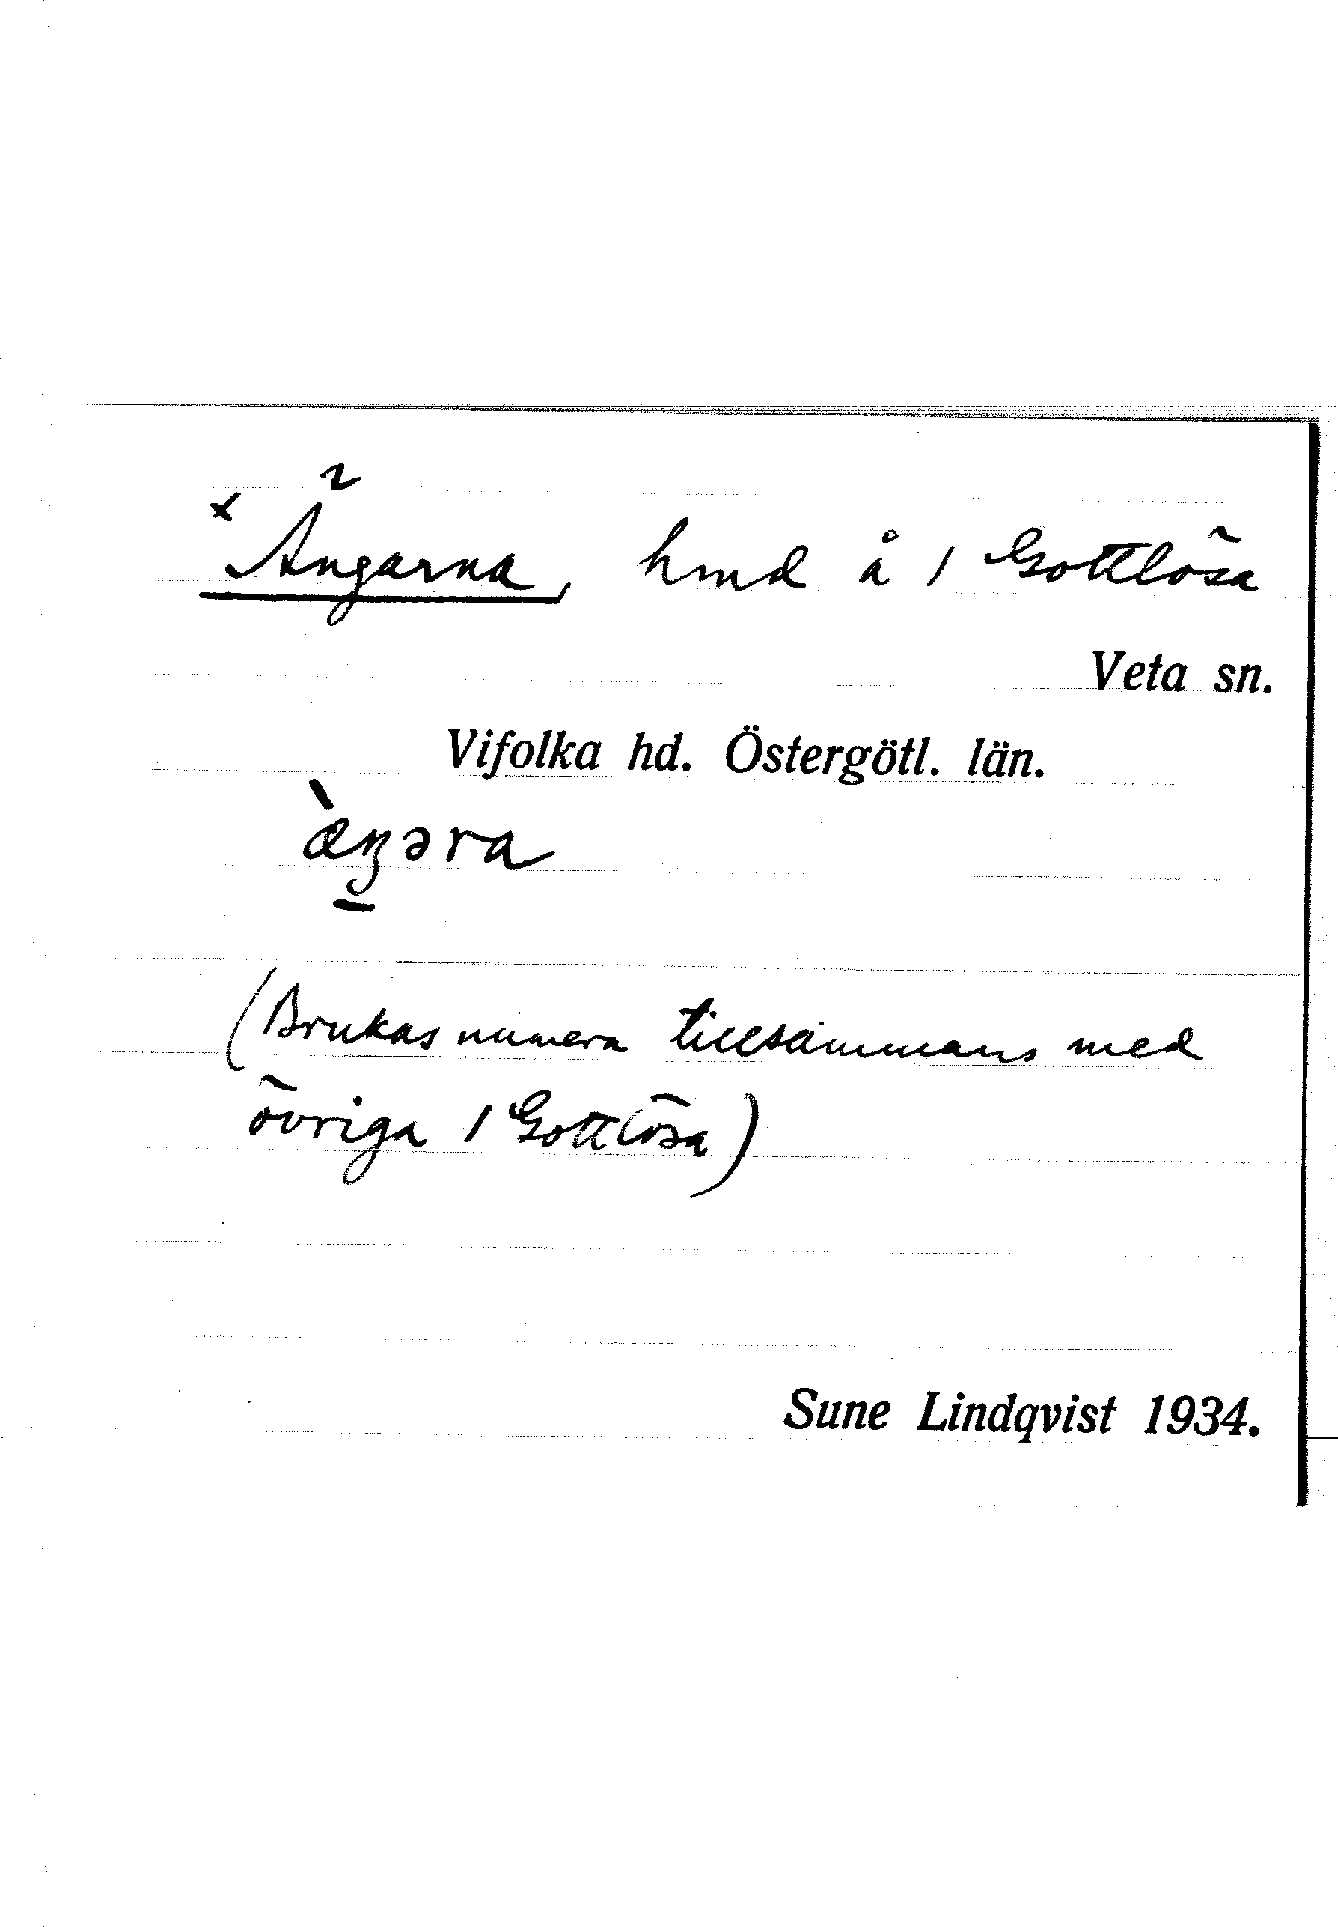 × Ängarna, hmd å 1 Gottlösa
Veta sn.
Vifolka hd. Östergötl. län.
æ̀ŋəra
(Brukas numera tillsammans med
övriga 1 Gottlösa)
Sune Lindqvist 1934.